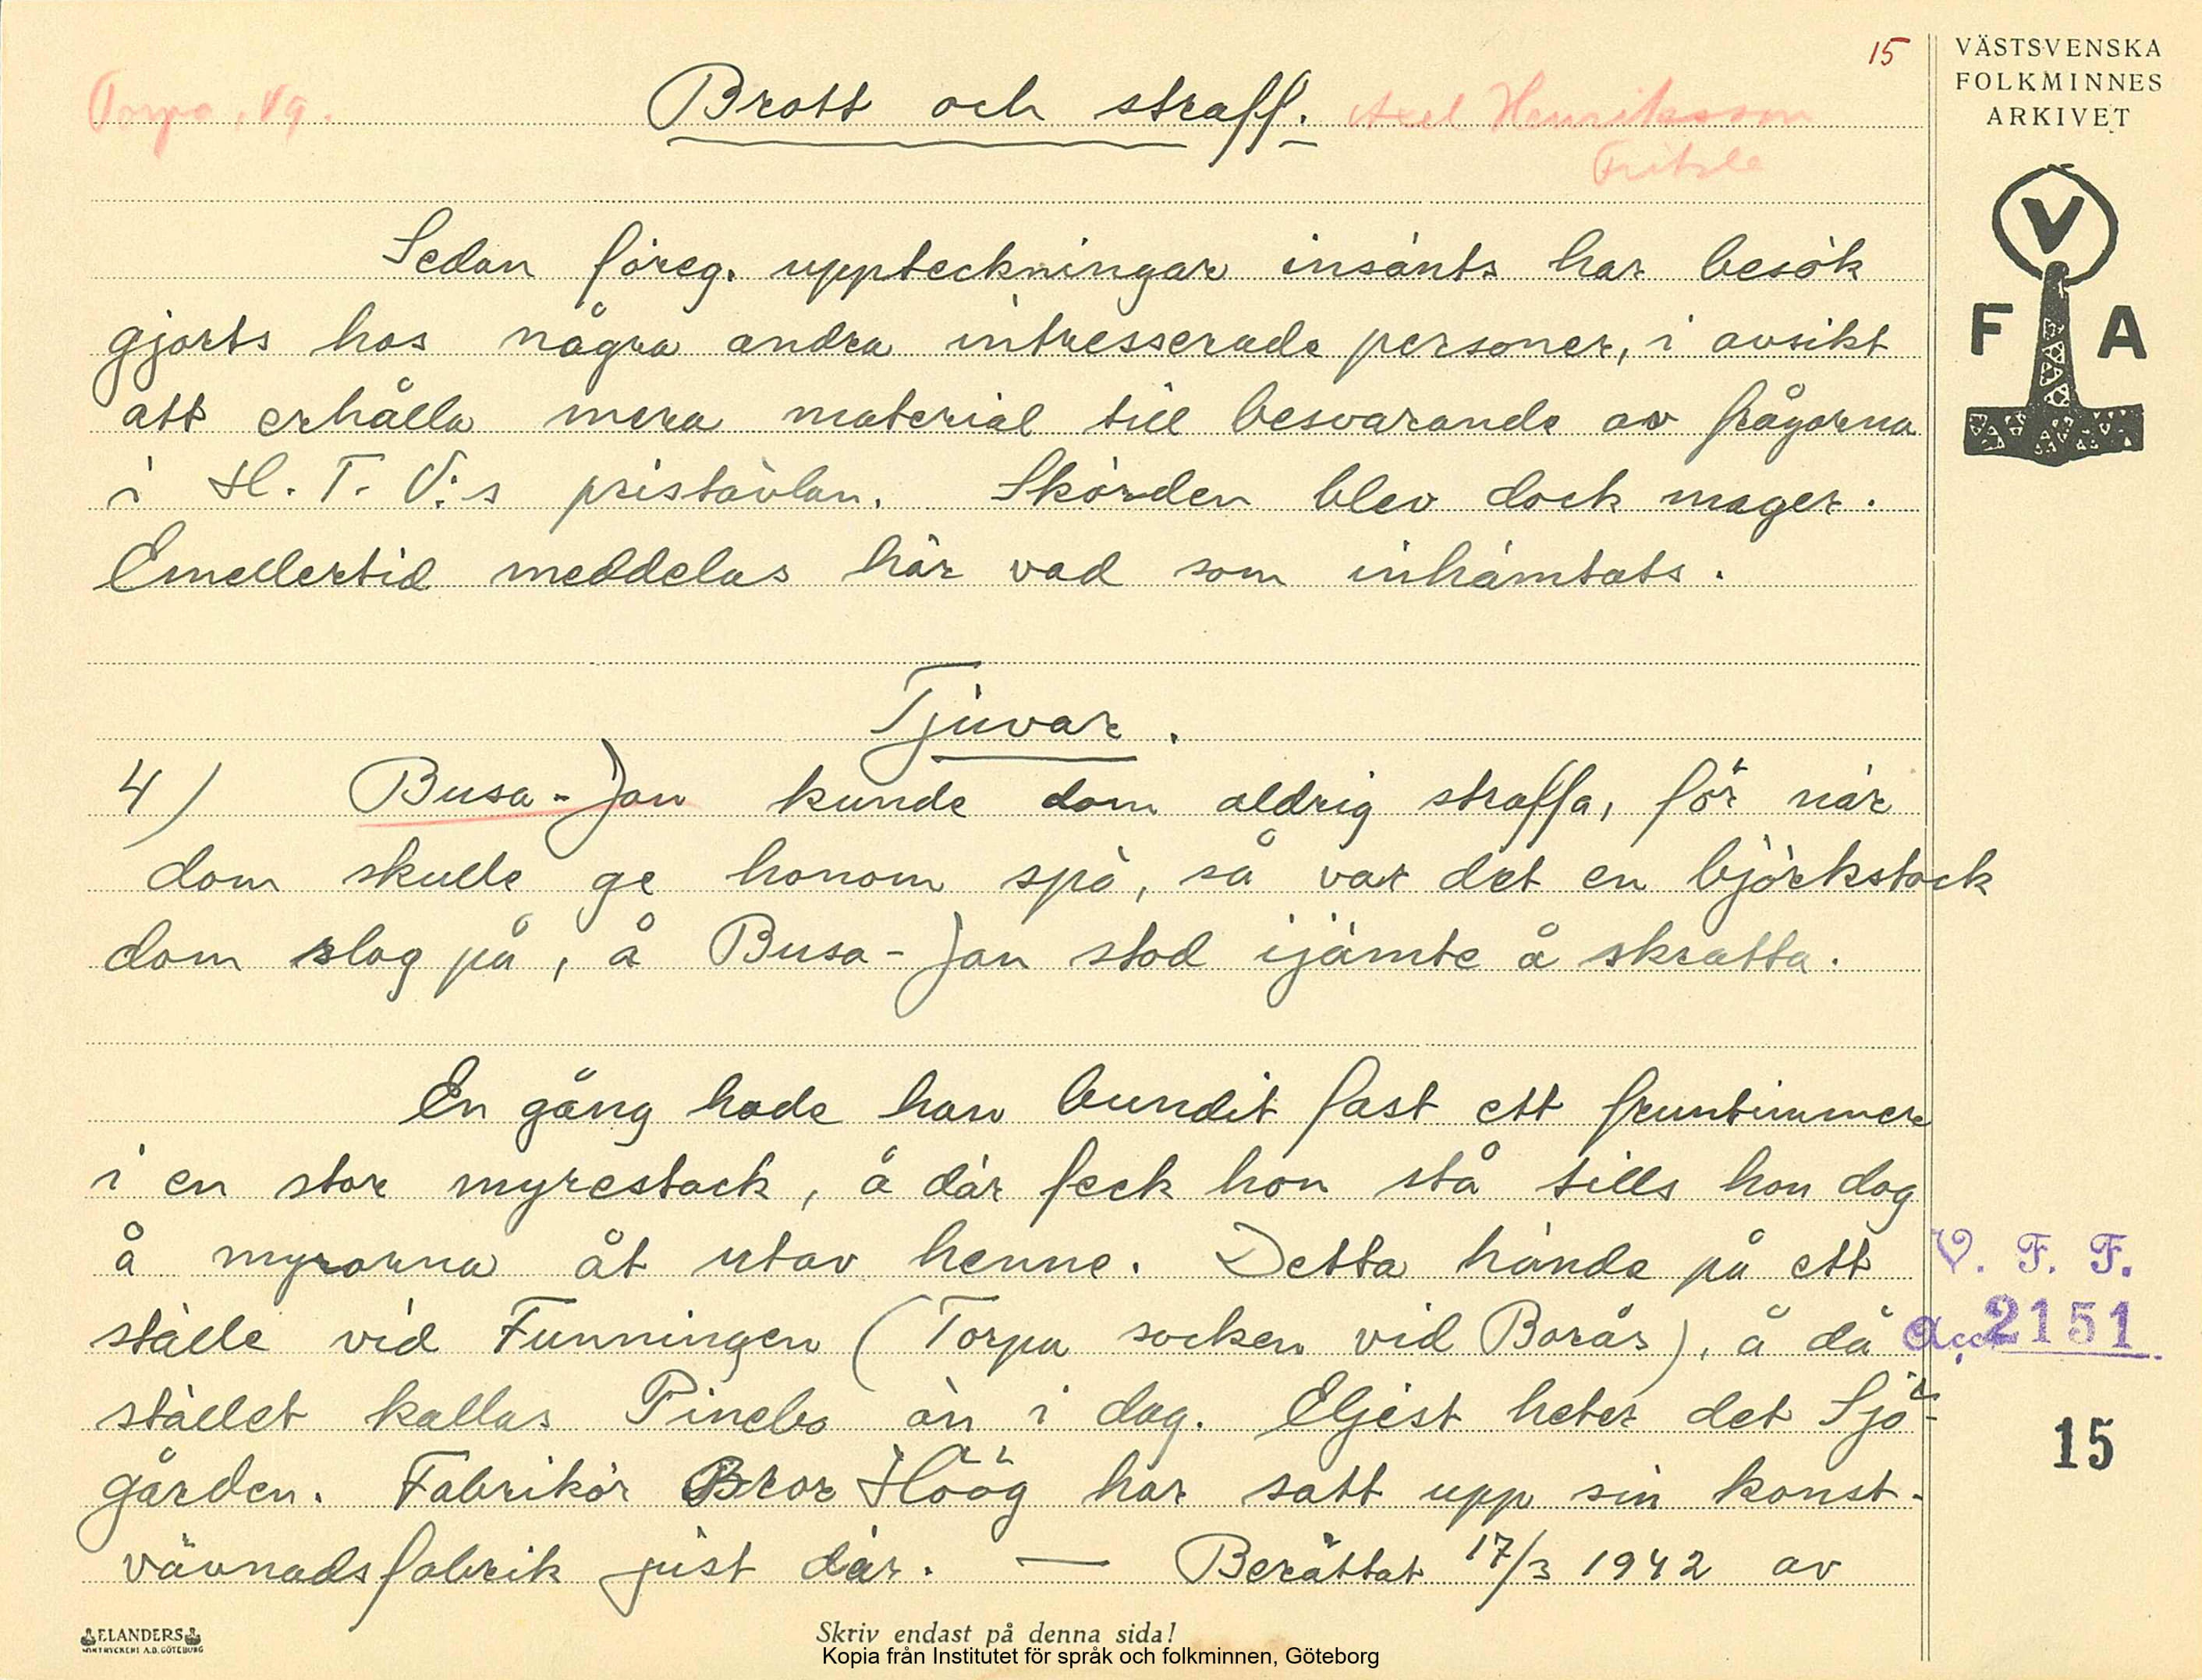 15
VÄSTSVENSKA
FOLKMINNES
ARKIVET
V
F A
Torpa, Vg.
Brott och straff.
Axel Henriksson
Fritsla
Sedan föreg. uppteckningar insänts har besök
gjorts hos några andra intresserade personer, i avsikt
att erhålla mera material till besvarande av frågorna
i H. T. V:s pristävlan. Skörden blev dock mager.
Emellertid meddelas här vad som inhämtats.
Tjuvar.
4) Busa-Jan kunde dom aldrig straffa, för när
dom skulle ge honom spö, så var det en björkstock
dom slog på, å Busa-Jan stod ijämte å skratta.
En gång hade han bundit fast ett fruntimmer
i en stor myrestack, å där feck hon stå tills hon dog
å myrorna åt utav henne. Detta hände på ett
ställe vid Funningen (Torpa socken vid Borås), å då
stället kallas Pinebo än i dag. Eljest heter det Sjö-
gården. Fabrikör Bror Höög har satt upp sin konst-
vävnadsfabrik just där. — Berättat 17/3 1942 av
V. F. F.
Acc. 2151
15
ELANDERS
Skriv endast på denna sida!
Kopia från Institutet för språk och folkminnen, Göteborg